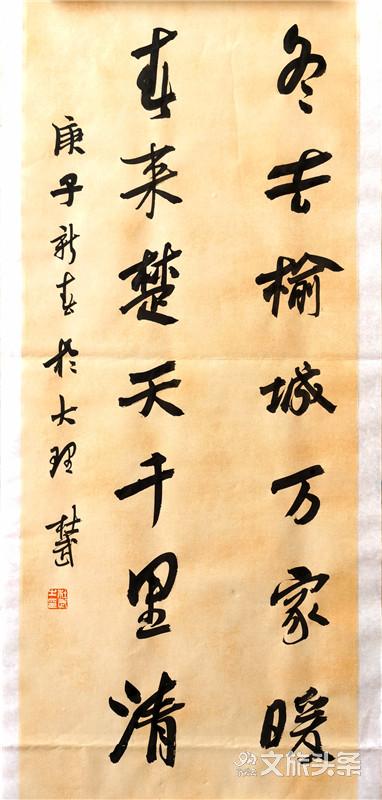 冬去榆城万家暖
春来楚天千里清
庚子新春於大理
文旅头条